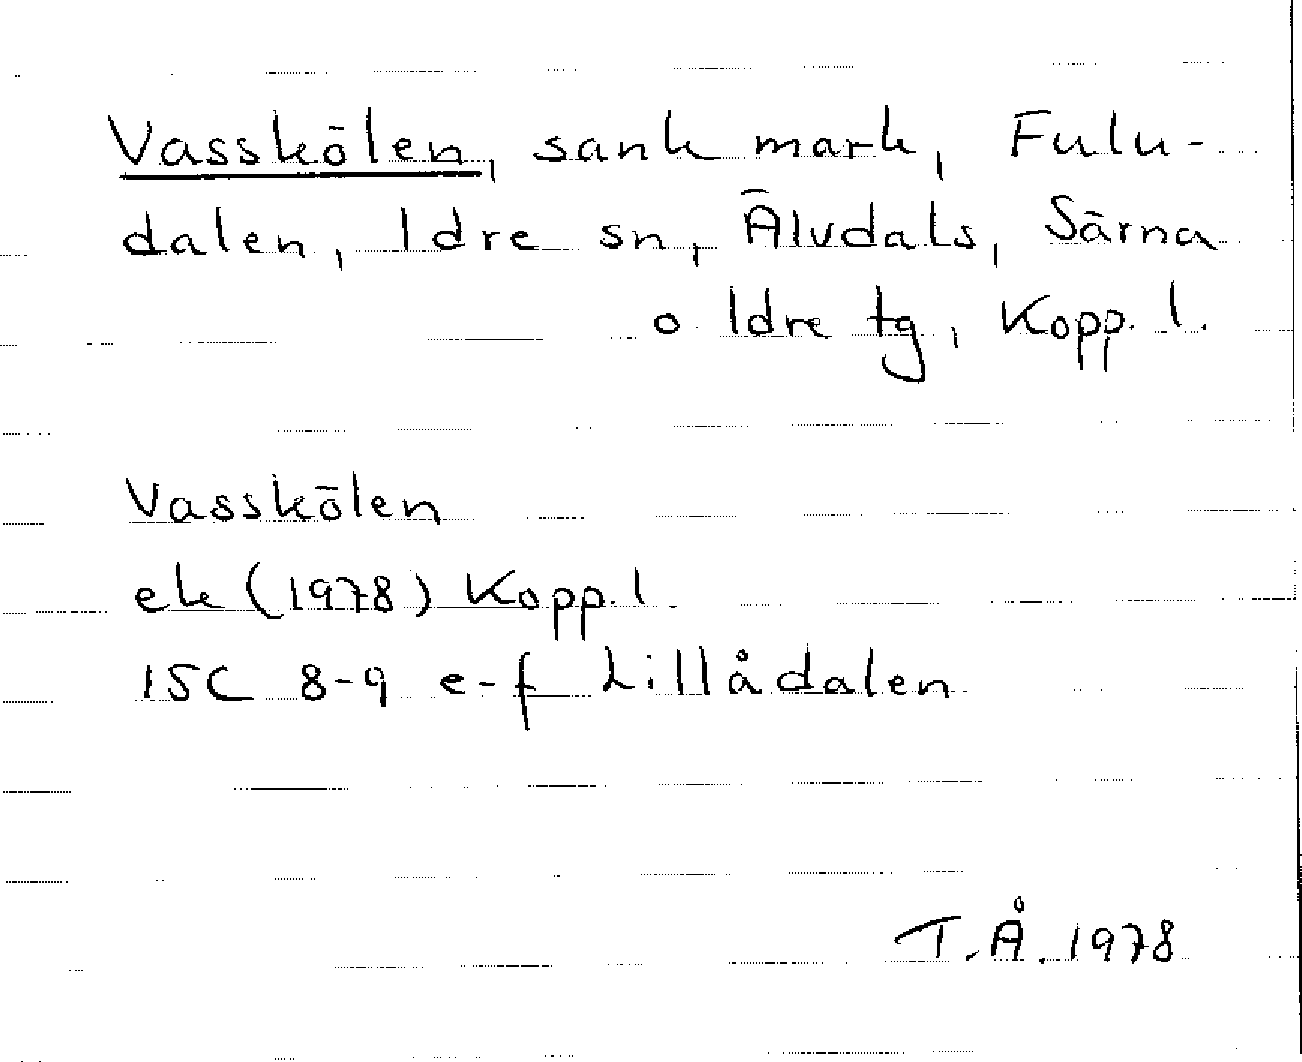 Vasskölen, sank mark, Fulu-
dalen, Idre sn, Älvdals, Särna
o Idre tg, Kopp. l.
Vasskölen
ek (1978) Kopp. l
15C 8-9 e-f Lillådalen
T.Å. 1978